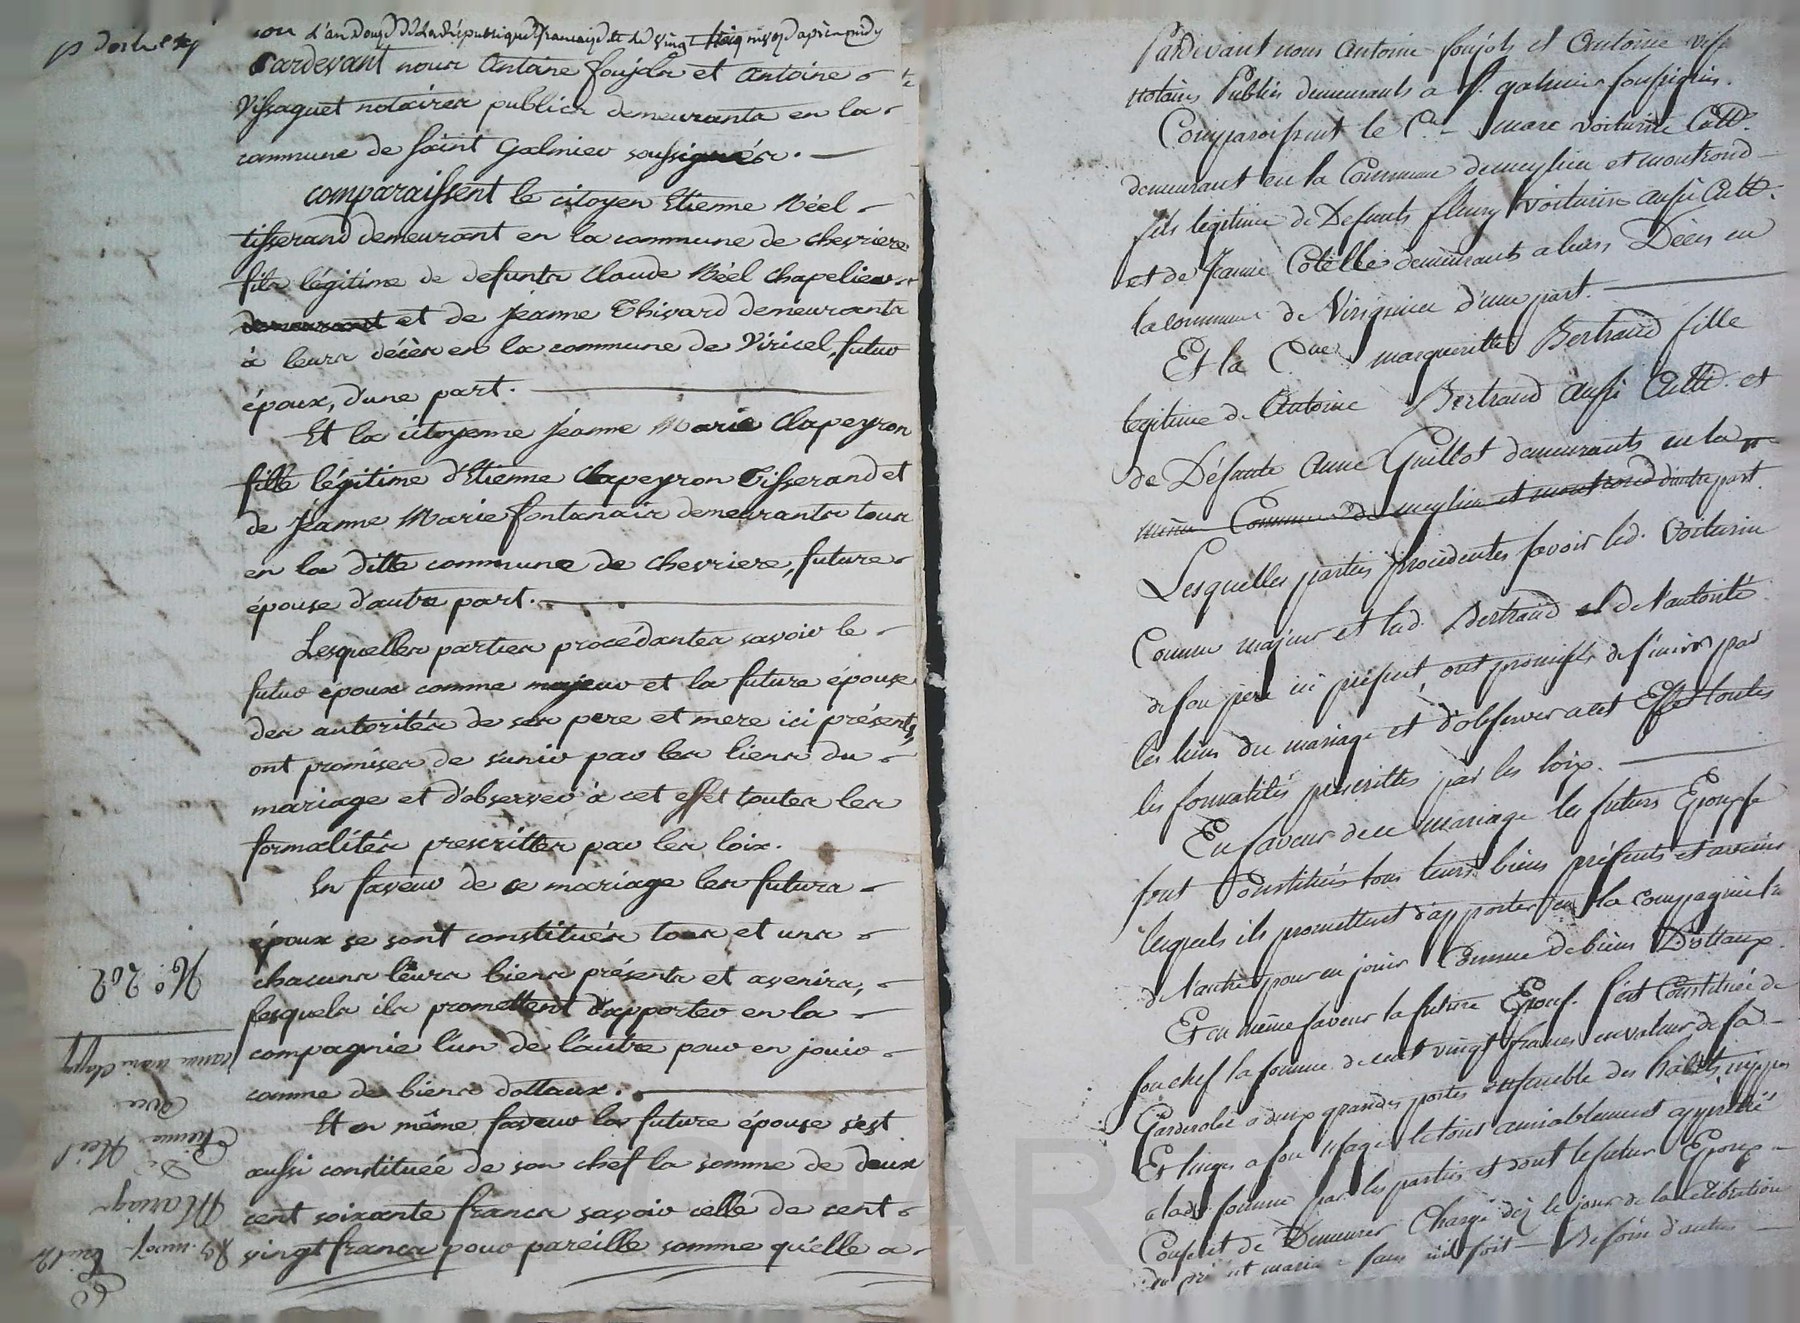 p expédié
l'an douze de la république française et le vingt trois nivose après midy
Pardevant nous Antoine foujols et Antoine
Vissaguet notaires publics demeurants en la
commune de saint Galmier soussignés.
comparaissent le citoyen Etienne Réel
tisserand demeurant en la commune de chevriere
fils légitime de defunts Claude Réel chapelier
demeurant et de Jeanne Thivard demeurants
à leurs décès en la commune de Viricel, futur
époux, d'une part.
Et la citoyenne Jeanne Marie Clapeyron
fille légitime d'Etienne Clapeyron Tisserand et
de Jeanne Marie fontanais demeurants tous
en la ditte commune de chevriere, future
épouse d'autre part.
Lesquelles parties procédantes savoir le
futur époux comme majeur et la future épouse
des autorités de ses pere et mere ici présents,
ont promises de s'unir par les liens du
mariage et d'observer à cet effet toutes les
formalités prescrittes par les loix.
En faveur de ce mariage les futurs
époux se sont constitués tous et uns
chacuns leurs biens présents et avenirs,
lesquels ils promettent d'apporter en la
compagnie l'un de l'autre pour en jouir
comme de biens dottaux.
Et en même faveur la future épouse s'est
aussi constituée de son chef la somme de deux
cent soixante francs savoir celle de cent
vingt francs pour pareille somme qu'elle a
23 nivose
Mariage
De
Etienne Réel
avec
jeanne marie Clapey
N.° 202
Pardevant nous Antoine foujols et Antoine Viss
Notaires Publics demeurants a St. galmier soussignés.
Comparoissent le C.en marc voiturin Cult.
demeurant en la Commune de meylieu et montrond
fils légitime de Defunts fleury Voiturin aussi Cult.
et de Jeanne Cotelle demeurants a leurs Décès en
la commune de Virignieu d'une part.
Et la C.ne marguerite Bertrand fille
legitime de Antoine Bertrand Aussi Cultd. et
de Défunte Anne Guillot demeurants en la
même Commune de meylieu et montrond d'autre part.
Lesquelles parties procédentes savoir led. Voiturin
Comme majeur et lad. Bertrand de l'autorité
de son père ici présent, ont promises de s'unir par
les liens du mariage et d'observer a cet Effet toutes
les formalités prescrittes par les loix.
En faveur de ce mariage les futurs Epoux se
sont Constitués tous leurs biens présents et avenirs
lesquels ils promettent d'apporter en la compagnie l'un
de l'autre pour en jouir Comme de biens Dottaux.
Et en même faveur la future Epouse s'est Constituée de
son chef la somme de cent vingt francs en valeur de sa
Garderobe a deux grandes portes ensemble des habits, nippes
Et linges a son usage le tout amiablement apprécié
a lad. somme par les parties et dont le futur Epoux
Consent de Demeurer Chargé dez le jour de la célébration
du présent mariage sans qu'il soit Besoin d'autre